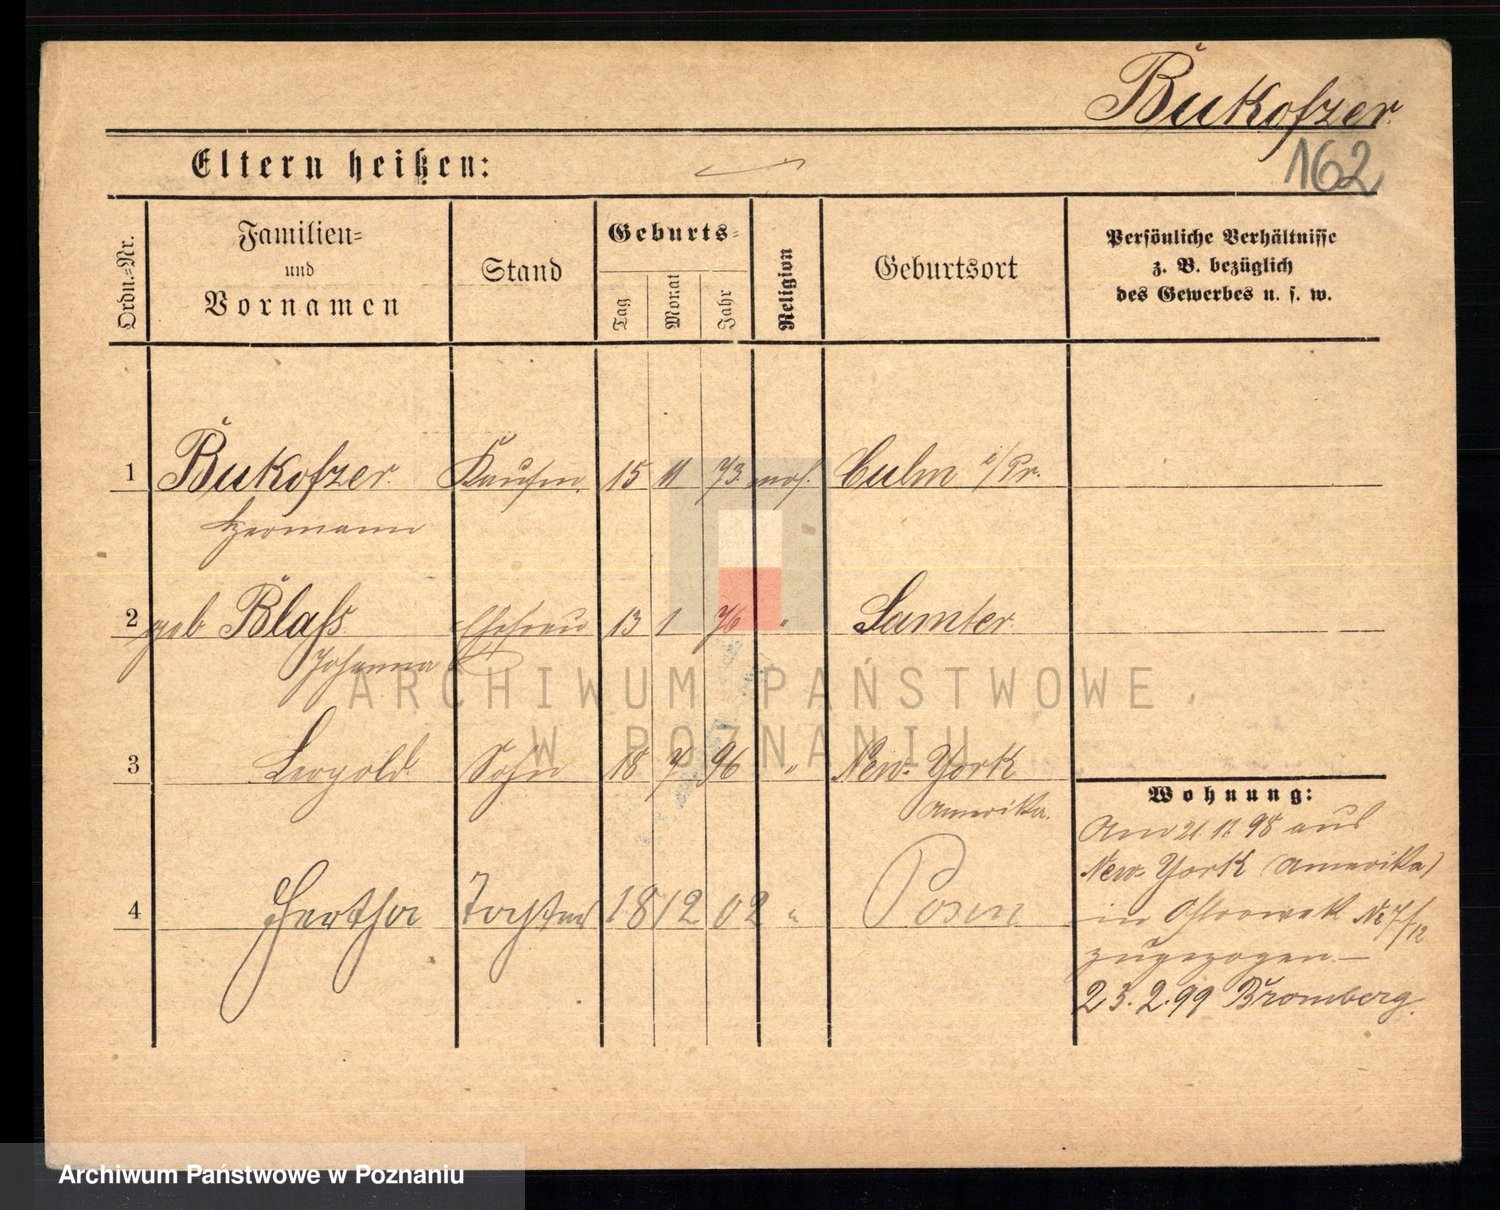 Bukofzer
162
Eltern heißen:
Ordn.-Nr.
Familien- und Vornamen
Stand
Geburts-
Tag
Monat
Jahr
Religion
Geburtsort
Persönliche Verhältnisse
z. B. bezüglich
des Gewerbes u. s. w.
1 Bukofzer Kaufm. 15 11 73. mos. Culm i/Pr.
Hermann
2 geb Blass Ehefrau 13 1 76 " Samter
Johanna
3 Leopold Sohn 18 7 96 " New-York
Amerika.
4 Hertha Tochter 18 12 02 " Posen
Wohnung:
Am 21.11.98 aus
New-York (Amerika)
in Ostrowek No 7/12
zugezogen.—
23.2.99 Bromberg.
ARCHIWUM PAŃSTWOWE
W POZNANIU
Archiwum Państwowe w Poznaniu